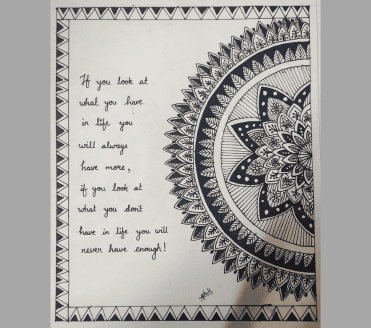 If you look at
what you have
in life you
will always
have more,
if you look at
what you dont
have in life you will
never have enough!